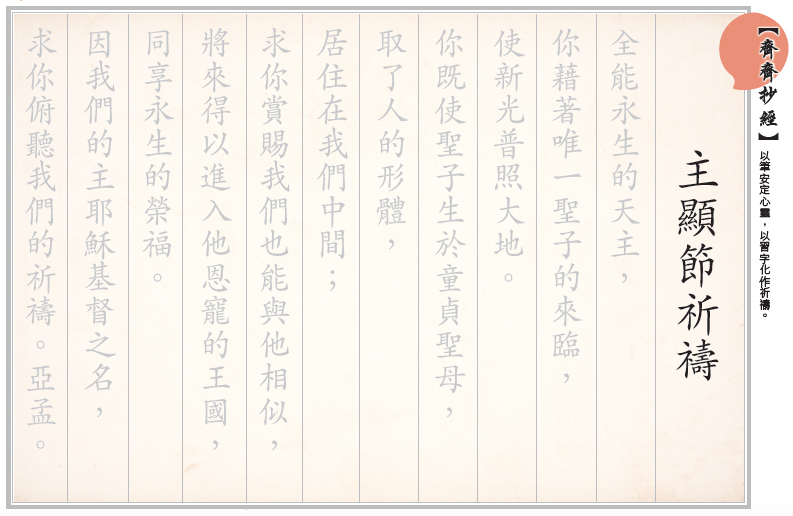 【齊齊抄經】以筆安定心靈，以習字化作祈禱。
主顯節祈禱
全能永生的天主，
你藉著唯一聖子的來臨，
使新光普照大地。
你既使聖子生於童貞聖母，
取了人的形體，
居住在我們中間；
求你賞賜我們也能與他相似，
將來得以進入他恩寵的王國，
同享永生的榮福。
因我們的主耶穌基督之名，
求你俯聽我們的祈禱。亞孟。